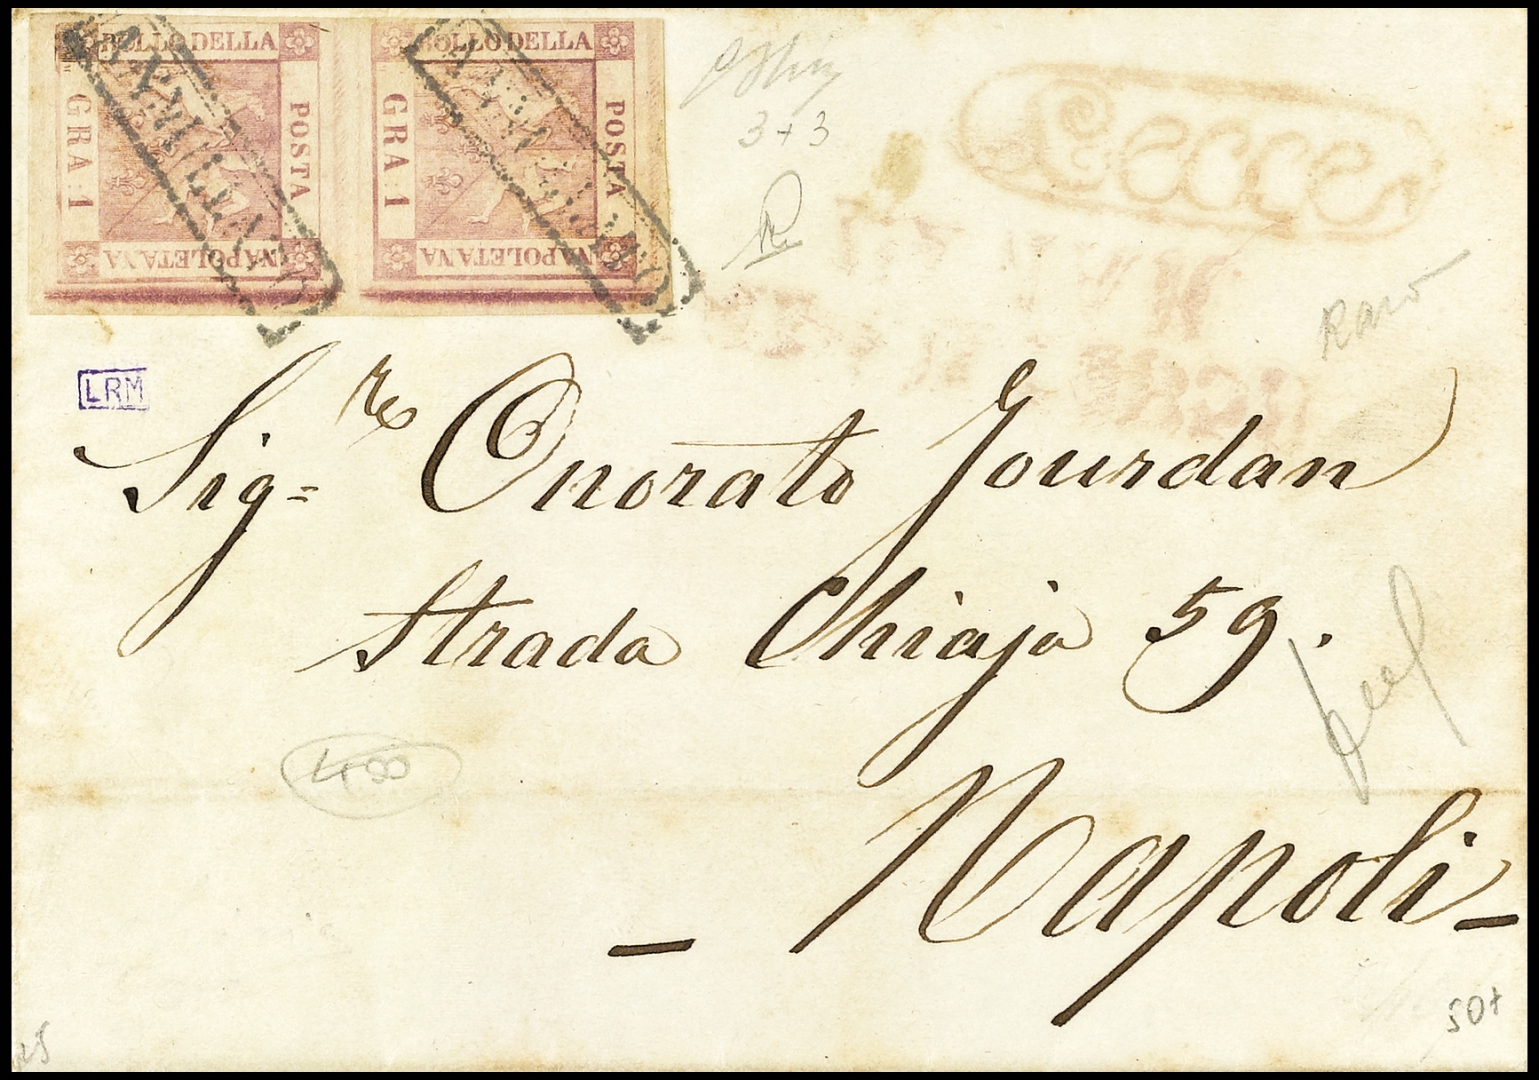 BOLLO DELLA
POSTA
NAPOLETANA
GRA 1
ANNULLATO
BOLLO DELLA
POSTA
NAPOLETANA
GRA 1
ANNULLATO
3+3
Raro
LRM
Sig.re Onorato Jourdan
Strada Chiaja 59.
400
- Napoli -